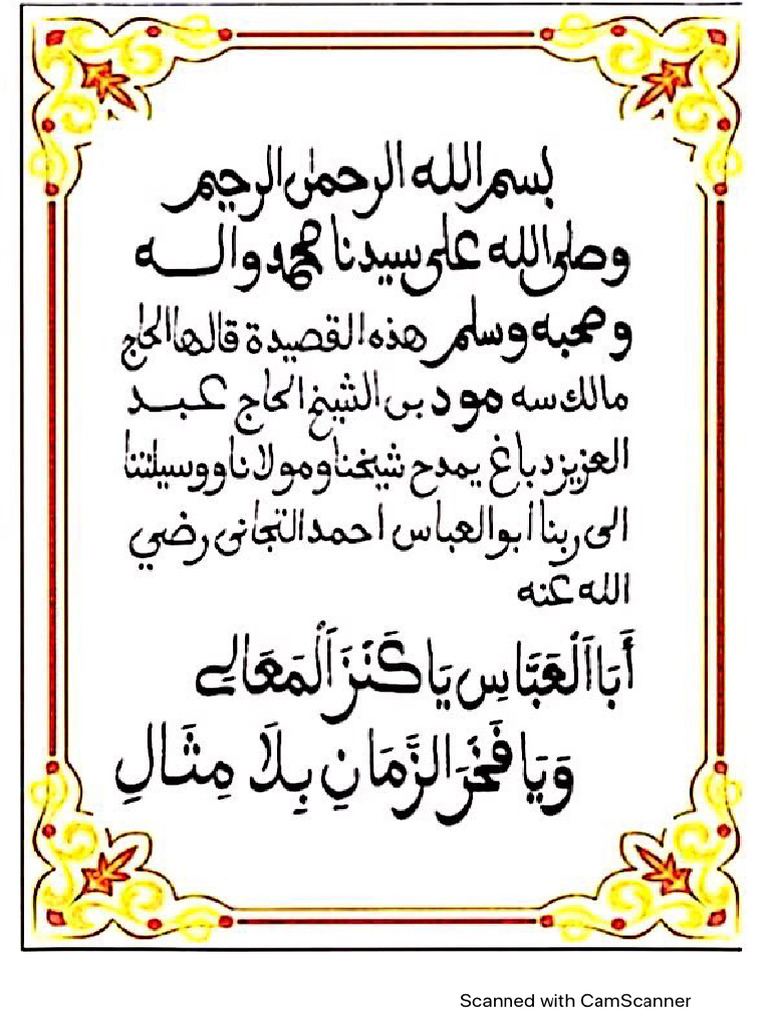 بسم الله الرحمٰن الرحيم
وصلى الله على سيدنا محمد وآلــه
وصحبه وسلم هذه القصيدة قالها الحاج
مالك سه مود بن الشيخ الحاج عبــد
العزيز دباغ يمدح شيخنا ومولانا ووسيلتنا
الى ربنا أبو العباس احمد التجانى رضي
الله عنه
أَبَا اَلْعَبَّاسِ يَا كَنْزَ اَلْمَعَالِے
وَيَا فَخْرَ الزَّمَانِ بِلَا مِثَالِ
Scanned with CamScanner